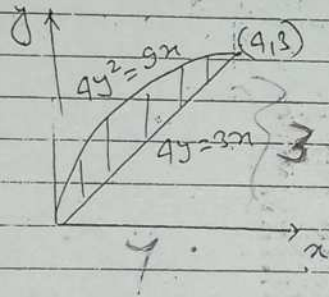 y
(4,3)
4y²=9x
4y=3x
3
x